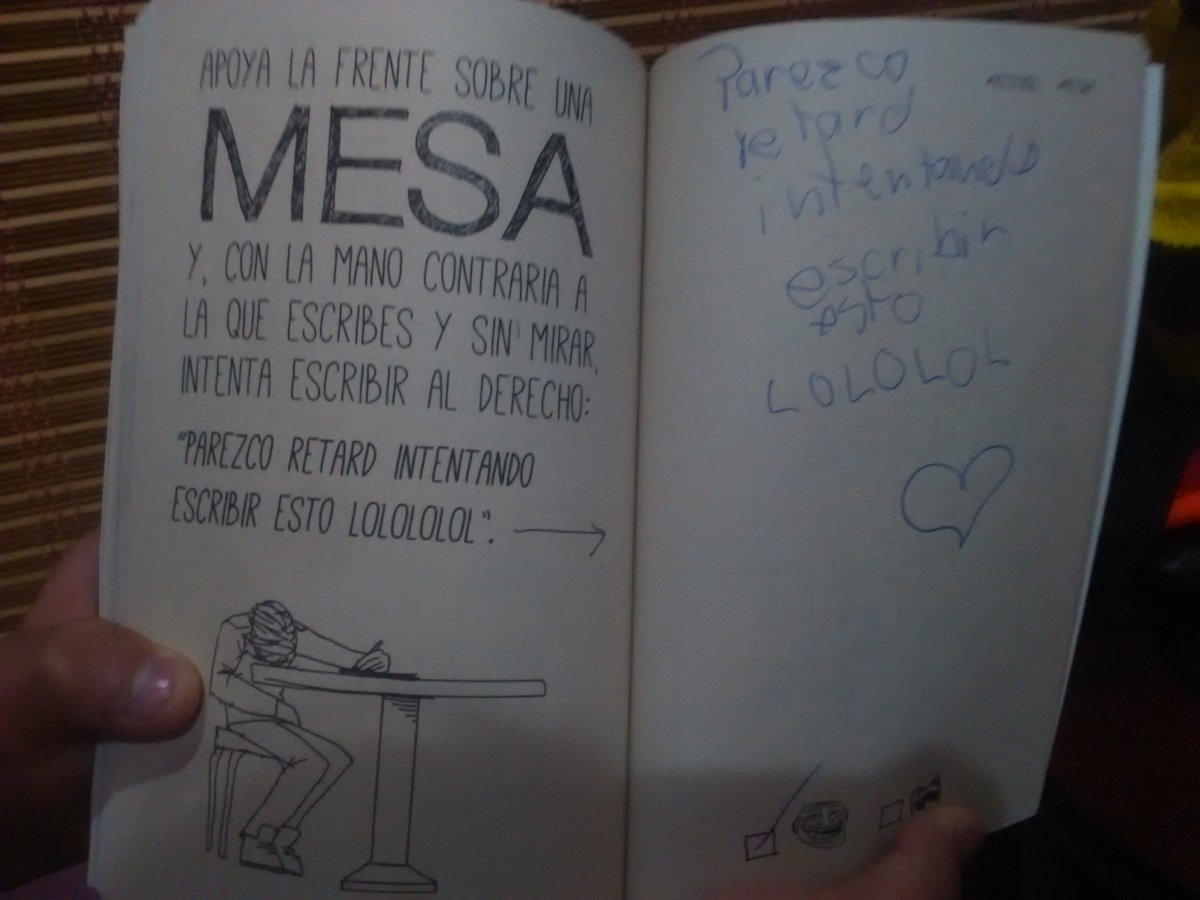 APOYA LA FRENTE SOBRE UNA
MESA
Y, CON LA MANO CONTRARIA A
LA QUE ESCRIBES Y SIN MIRAR,
INTENTA ESCRIBIR AL DERECHO:
"PAREZCO RETARD INTENTANDO
ESCRIBIR ESTO LOLOLOLOL".
Parezco
retard
escribir
esto
LOLOLOL